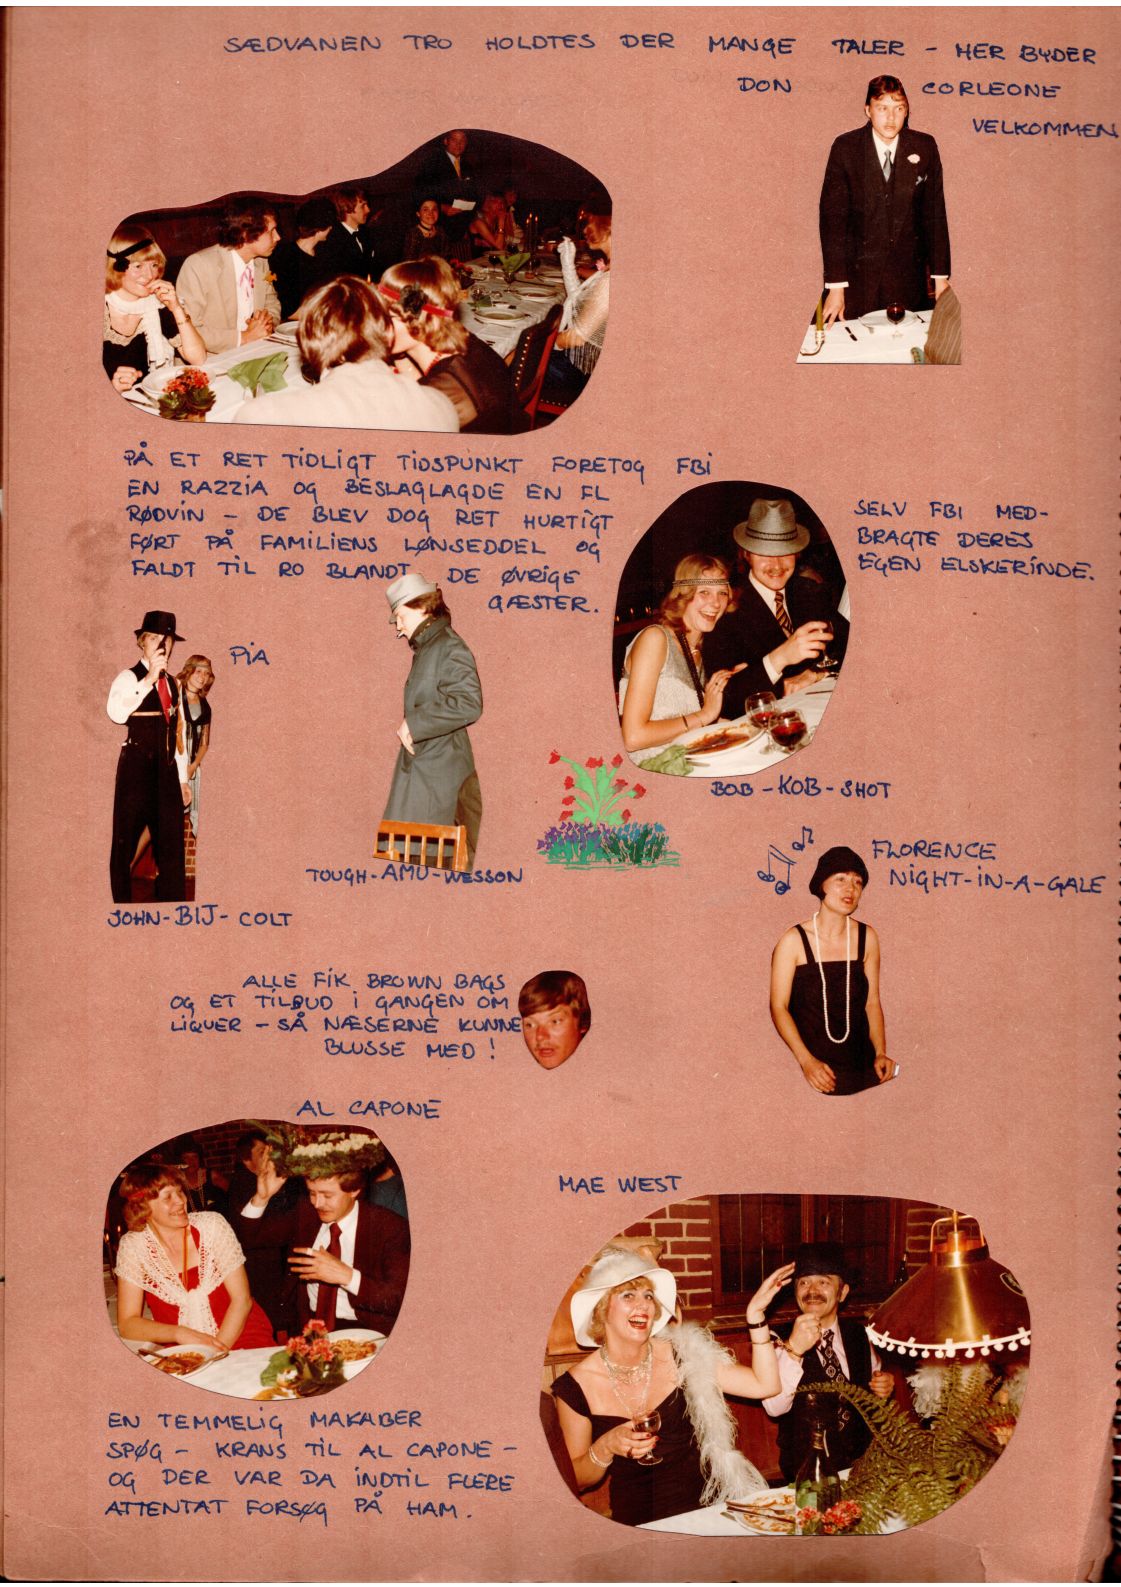 SÆDVANEN TRO HOLDTES DER MANGE TALER - HER BYDER
DON CORLEONE
VELKOMMEN
PÅ ET RET TIDLIGT TIDSPUNKT FORETOG FBI
EN RAZZIA OG BESLAGLAGDE EN FL
RØDVIN - DE BLEV DOG RET HURTIGT
FØRT PÅ FAMILIENS LØNSEDDEL OG
FALDT TIL RO BLANDT DE ØVRIGE
GÆSTER.
SELV FBI MED-
BRAGTE DERES
EGEN ELSKERINDE.
PIA
BOB-KOB-SHOT
TOUGH-AMU-WESSON
JOHN-BIJ-COLT
FLORENCE
NIGHT-IN-A-GALE
ALLE FIK BROWN BAGS
OG ET TILBUD I GANGEN OM
LIQUER - SÅ NÆSERNE KUNNE
BLUSSE MED!
AL CAPONE
MAE WEST
EN TEMMELIG MAKABER
SPØG - KRANS TIL AL CAPONE -
OG DER VAR DA INDTIL FLERE
ATTENTAT FORSØG PÅ HAM.